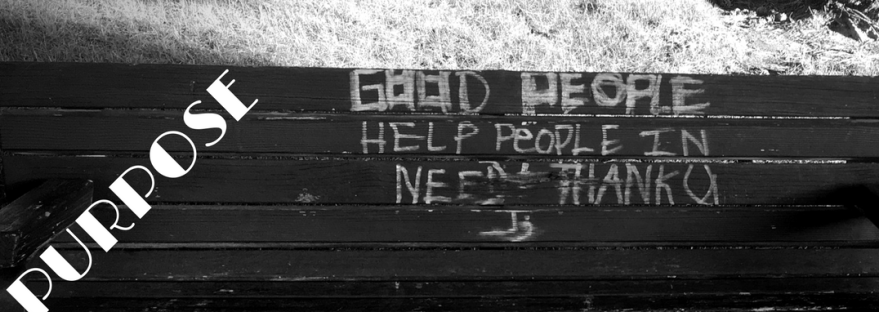 PURPOSE
GOOD PEOPLE
HELP PEOPLE IN
NEED THANK U